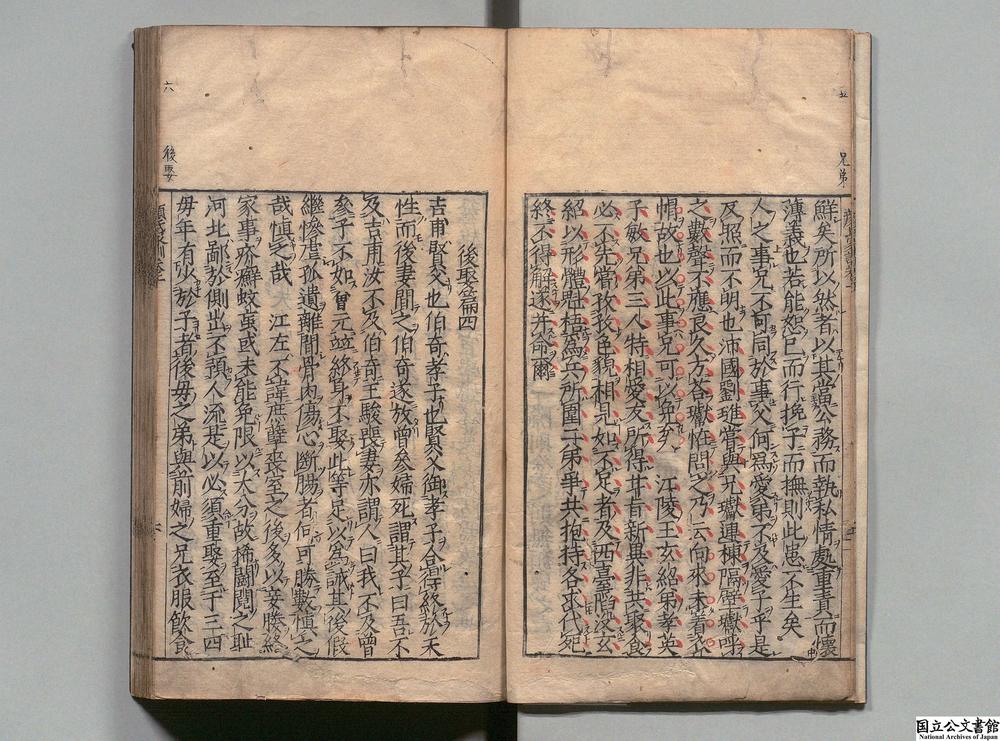 五
兄弟
鮮矣所以然者以其當公務而執私情處重責而懷
薄義也若能恕己而行換子而撫則此患不生矣
人之事兄不可同於事父何爲愛弟不及愛子乎是
反照而不明也沛國劉璡嘗與兄瓛連棟隔壁瓛呼
之數聲不應良久方荅瓛怪問之乃云向來未着衣
帽故也以此事兄可以免矣　江陵王玄紹弟孝英
子敏兄弟三人特相愛友所得甘旨新異非共聚食
必不先嘗孜孜色貌相見如不足者及西臺陷没玄
紹以形體魁梧爲兵所圍二弟爭共抱持各求代死
終不得解遂并命爾
六
後娶
後娶篇四
吉甫賢父也伯奇孝子也賢父御孝子合得終於天
性而後妻間之伯奇遂放曾參婦死謂其子曰吾不
及吉甫汝不及伯奇王駿喪妻亦謂人曰我不及曾
參子不如曾元並終身不娶此等足以爲誡其後假
繼慘虐孤遺離間骨肉傷心斷腸者何可勝數慎之
哉慎之哉　江左不諱庶孽喪室之後多以妾媵終
家事疥癬蚊蝱或未能免限以大分故稀鬪鬩之恥
河北鄙於側出不預人流是以必須重娶至于三四
母年有少於子者後母之弟與前婦之兄衣服飮食
国立公文書館
National Archives of Japan